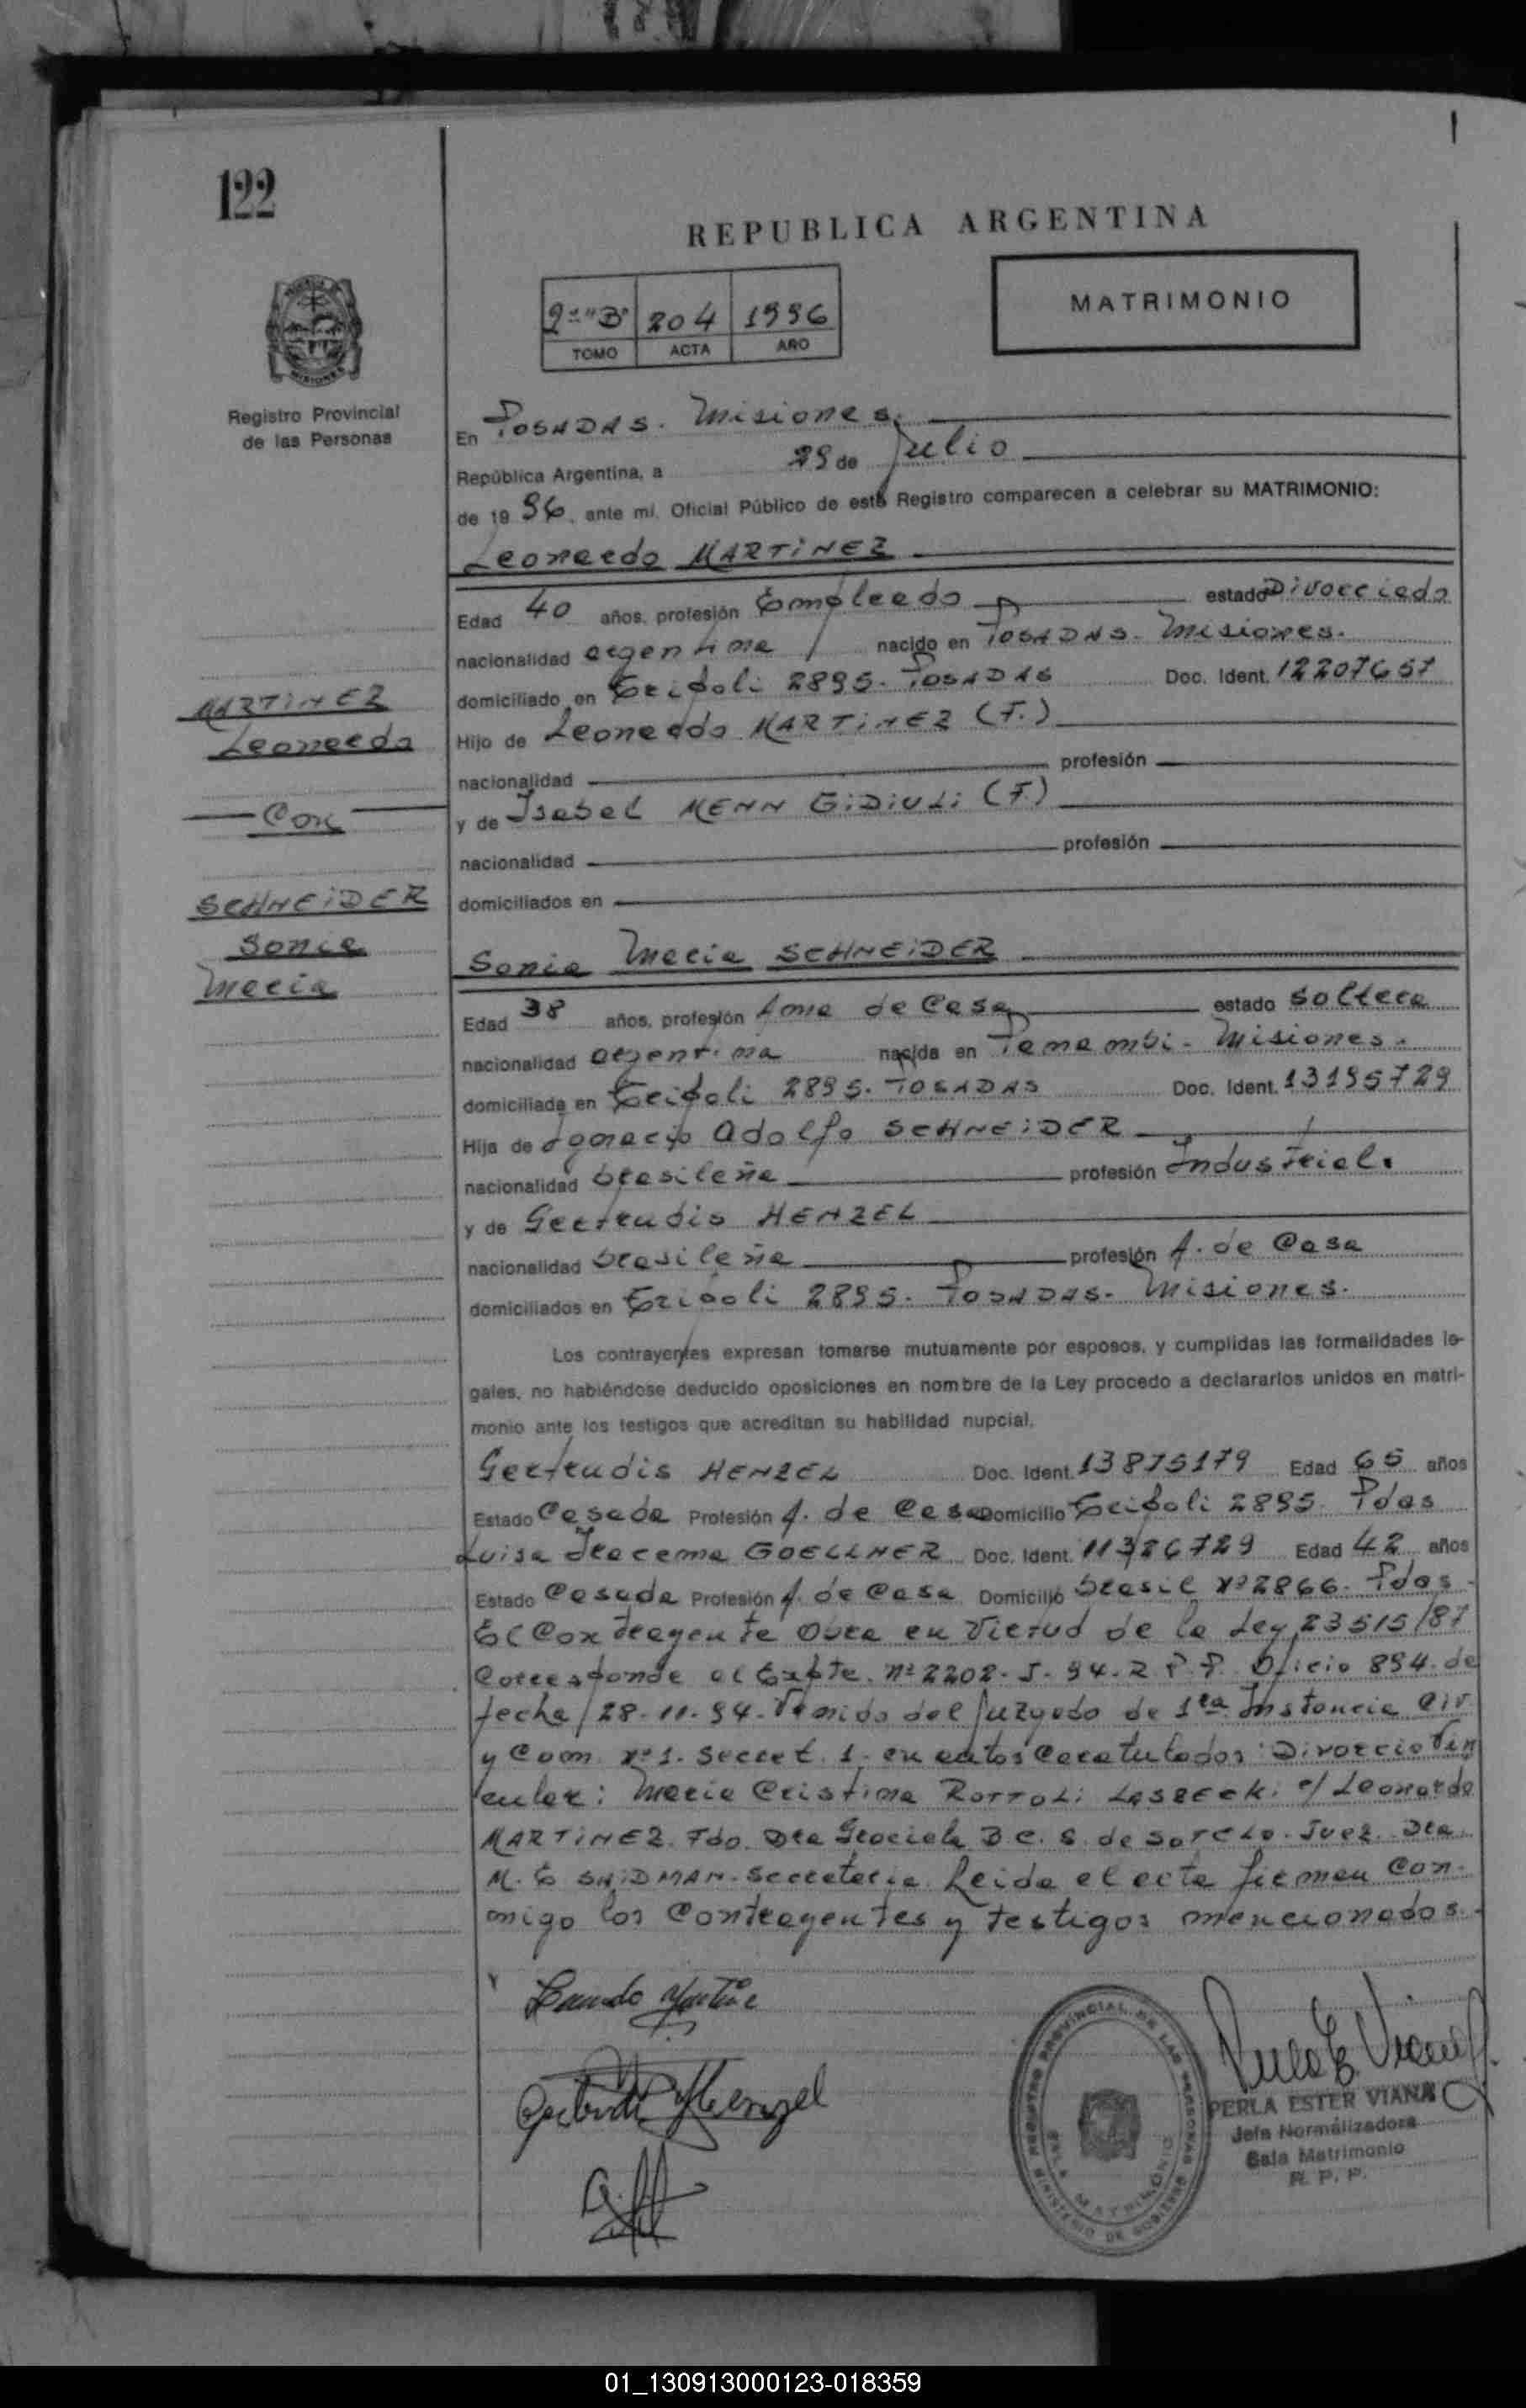 122
REPUBLICA ARGENTINA
2º "B" 204 1996
TOMO ACTA AÑO
MATRIMONIO
MISIONES
Registro Provincial
de las Personas
En POSADAS. Misiones.
República Argentina, a 29 de Julio
de 1996, ante mí, Oficial Público de este Registro comparecen a celebrar su MATRIMONIO:
Leonardo MARTINEZ
Edad 40 años, profesión Empleado estado Divorciado
nacionalidad argentina nacido en POSADAS. Misiones.
domiciliado en Tripoli 2895. POSADAS Doc. Ident. 12207657
Hijo de Leonardo MARTINEZ (F.)
nacionalidad profesión
y de Isabel MENN GIDIULI (F.)
nacionalidad profesión
domiciliados en
MARTINEZ
Leonardo
Con
SCHNEIDER
Sonia
Maria
Sonia Maria SCHNEIDER
Edad 38 años, profesión Ama de Casa estado soltera
nacionalidad argentina nacida en Panambi - Misiones.
domiciliada en Tripoli 2895. POSADAS Doc. Ident. 13195729
Hija de Ignacio Adolfo SCHNEIDER
nacionalidad brasileña profesión Industrial.
y de Gertrudis HENZEL
nacionalidad brasileña profesión A. de Casa
domiciliados en Tripoli 2895. POSADAS. Misiones.
Los contrayentes expresan tomarse mutuamente por esposos, y cumplidas las formalidades le-
gales, no habiéndose deducido oposiciones en nombre de la Ley procedo a declararlos unidos en matri-
monio ante los testigos que acreditan su habilidad nupcial.
Gertrudis HENZEL Doc. Ident. 13875179 Edad 65 años
Estado Casada Profesión A. de Casa Domicilio Tripoli 2895. Pdas
Luisa Iracema GOELLNER Doc. Ident. 11326729 Edad 42 años
Estado Casada Profesión A. de Casa Domicilio Brasil Nº 2866. Pdas.
El Contrayente obra en Virtud de la Ley 23515/87
Corresponde al Expte. nº 2202-J-94. R.P.P. Oficio 894 de
fecha 28-11-94. Venido del Juzgado de 1ra Instancia Civ.
y Com. nº 1. Secret. 1. en autos Caratulados: Divorcio Vin
cular: Maria Cristina ROTTOLI c/ Leonardo
MARTINEZ. Fdo. Dra Graciela B.C.S. de SOTELO. Juez. Dra.
M.E SNIDMAN. Secretaria. Leida el acta firman Con-
migo los Contrayentes y testigos mencionados.
Gertrudis Henzel
REGISTRO PROVINCIAL DE LAS PERSONAS
SALA MATRIMONIO
MINISTERIO DE GOBIERNO
PERLA ESTER VIANA
Jefa Normalizadora
Sala Matrimonio
R. P. P.
01_130913000123-018359